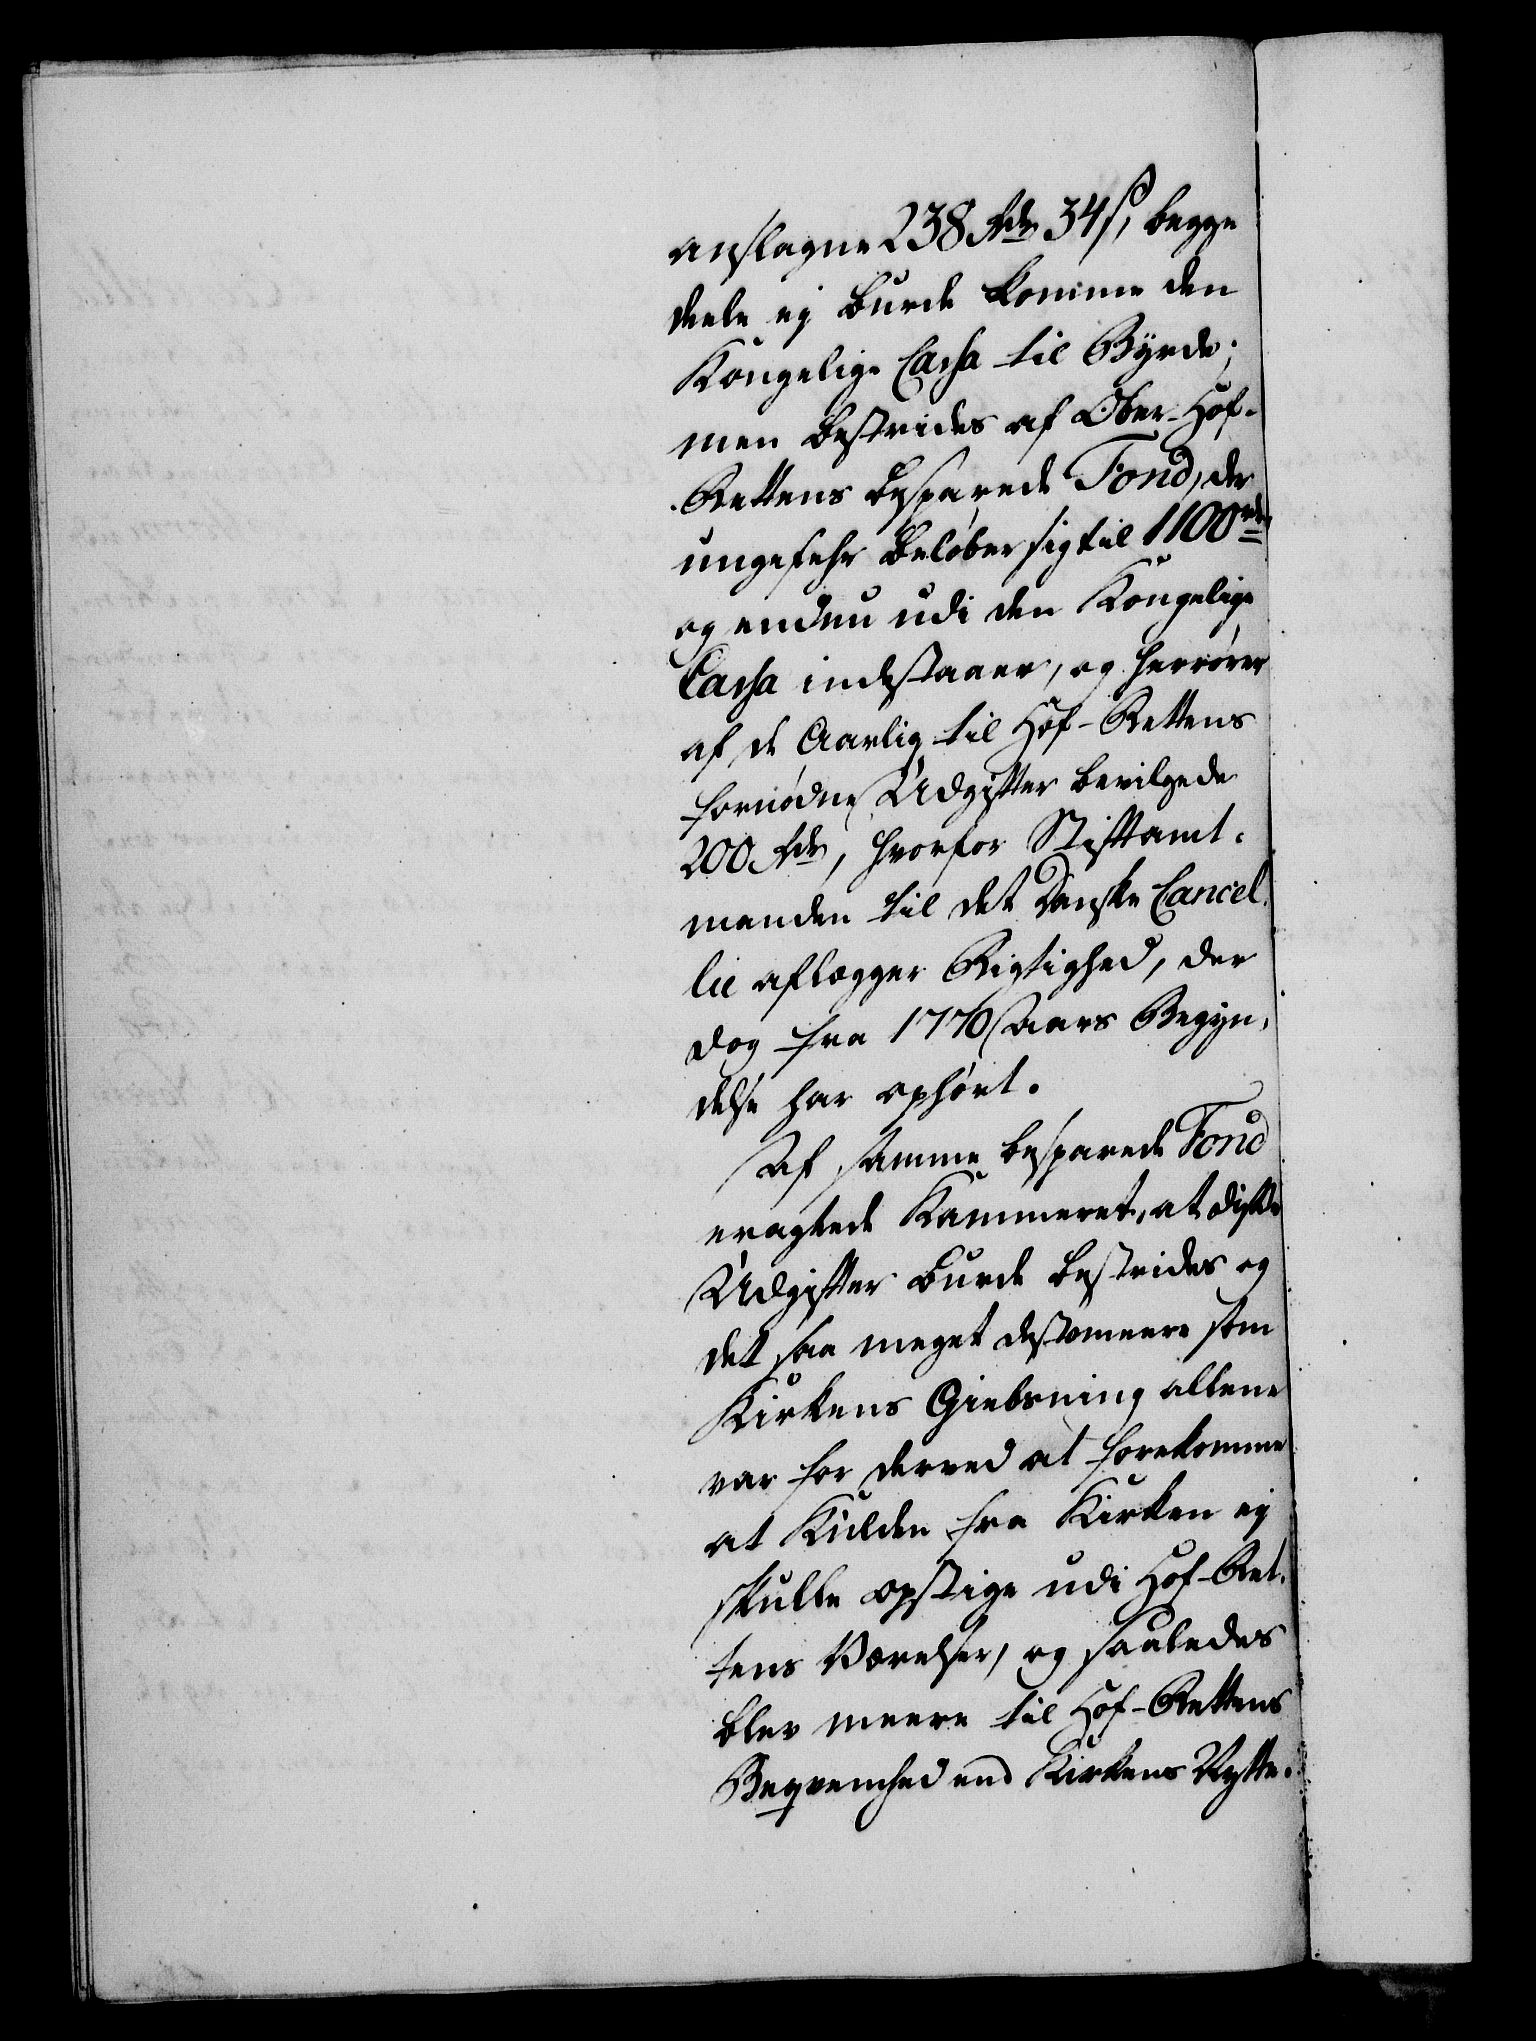 anslagne 238 Rdr 34 s, begge
deele ej burde komme den
Kongelige Cassa til Byrde;
men bestrides af Ober-Hof-
Rettens besparede Fond, der
ungefehr beløber sig til 1100 rdr
og endnu udi den Kongelige
Cassa indestaaer, og herrører
af de Aarlig til Hof-Rettens
fornødne Udgifter bevilgede
200 Rdr, hvorfor Stiftamt-
manden til det Danske Cancel-
lie aflægger Rigtighed, der
dog fra 1770 Aars Begyn-
delse har ophørt.
Af samme besparede Fond
eragtede Kammeret, at disse
Udgifter burde bestrides og
det saa meget destomeere som
Kirkens Giebsning allene
var for derved at forekomme
at Kulden fra Kirken ej
skulle opstige udi Hof-Ret-
tens Værelser, og saaledes
blev meere til Hof-Rettens
Beqvemhed end Kirkens Nytte.